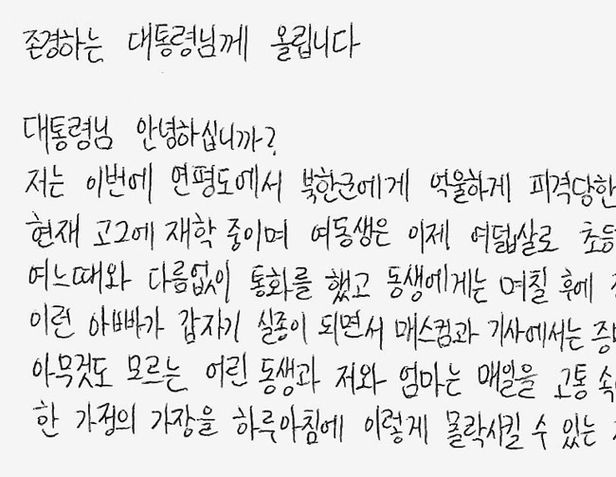 존경하는 대통령님께 올립니다
대통령님 안녕하십니까?
저는 이번에 연평도에서 북한군에게 억울하게 피격당한
현재 고2에 재학 중이며 여동생은 이제 여덟살로 초등
여느때와 다름없이 통화를 했고 동생에게는 며칠 후에
이런 아빠가 갑자기 실종이 되면서 매스컴과 기사에서는 증
아무것도 모르는 어린 동생과 저와 엄마는 매일을 고통 속
한 가정의 가장을 하루아침에 이렇게 몰락시킬 수 있는